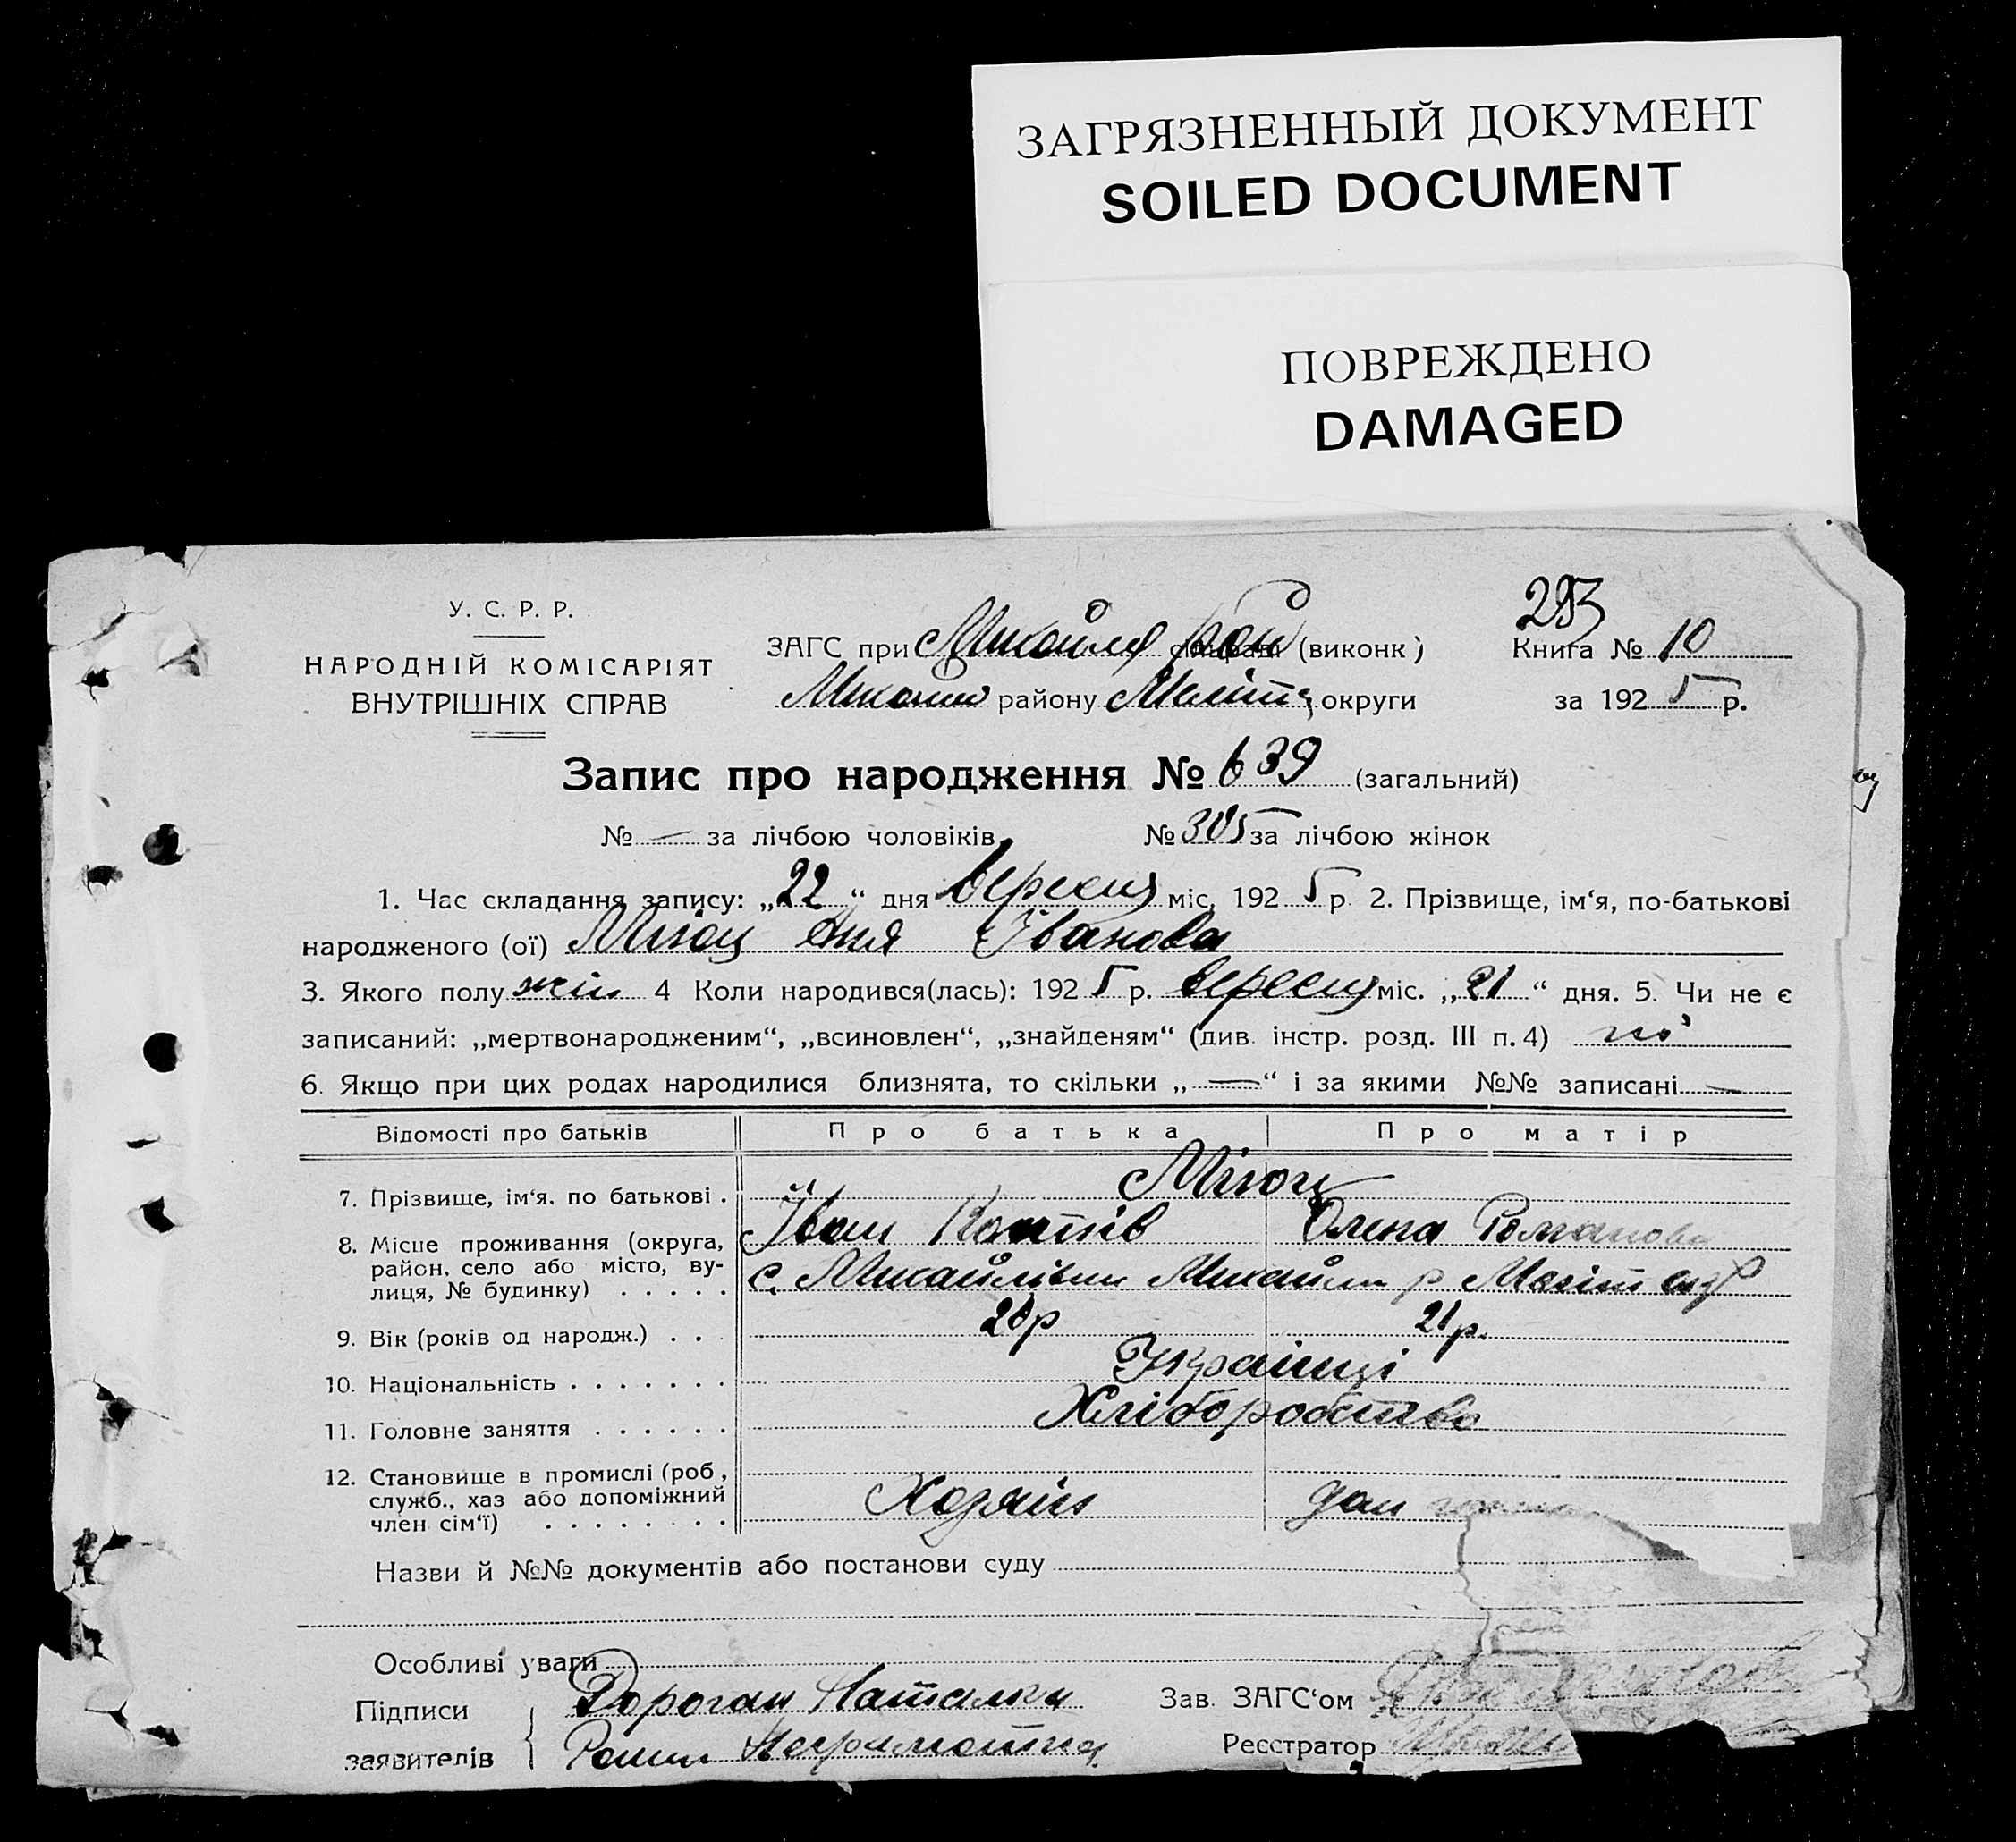 ЗАГРЯЗНЕННЫЙ ДОКУМЕНТ
SOILED DOCUMENT
ПОВРЕЖДЕНО
DAMAGED
293
У. С. Р. Р.
НАРОДНІЙ КОМІСАРІЯТ
ВНУТРІШНІХ СПРАВ
ЗАГС при Михайлів рай (виконк)
района Меліт округи
Книга № 10
за 1925 р.
Запис про народження № 639 (загальний)
№ — за лічбою чоловіків № 305 за лічбою жінок
1. Час складання запису: „22“ дня вересня міс, 1925 р. 2. Прізвище, ім‘я, по-батькові
народженого (ої) Мігоц Аня Іванова
3. Якого полу жін 4 Коли народився(лась): 1925 р. вересня міс. „21“ дня. 5. Чи не є
записаний: „мертвонародженим“, „всиновлен“, „знайденям“ (див. інстр. розд. III п. 4) ні
6. Якщо при цих родах народилися близнята, то скільки „—“ і за якими №№ записані —
Відомості про батьків Про батька Про матір
7. Прізвище, ім‘я, по батькові . Мігоц
Іван Олена Романова
8. Місце проживання (округа, район, село або місто, вулиця, № будинку) . . . . . с. Михайлівки Михайл р Меліт окр
9. Вік (років од народж.) . . . 21 р.
10. Національність . . . . . . . Українці
11. Головне заняття . . . . . . Хліборобство
12. Становище в промислі (роб., служб., хаз або допоміжний член сім‘ї) . . . . . . . . Хозяїн дом
Назви й №№ документів або постанови суду
Особливі уваги
Підписи Дороган Наталки
заявителів Неграмотна
Зав. ЗАГС‘ом
Реєстратор